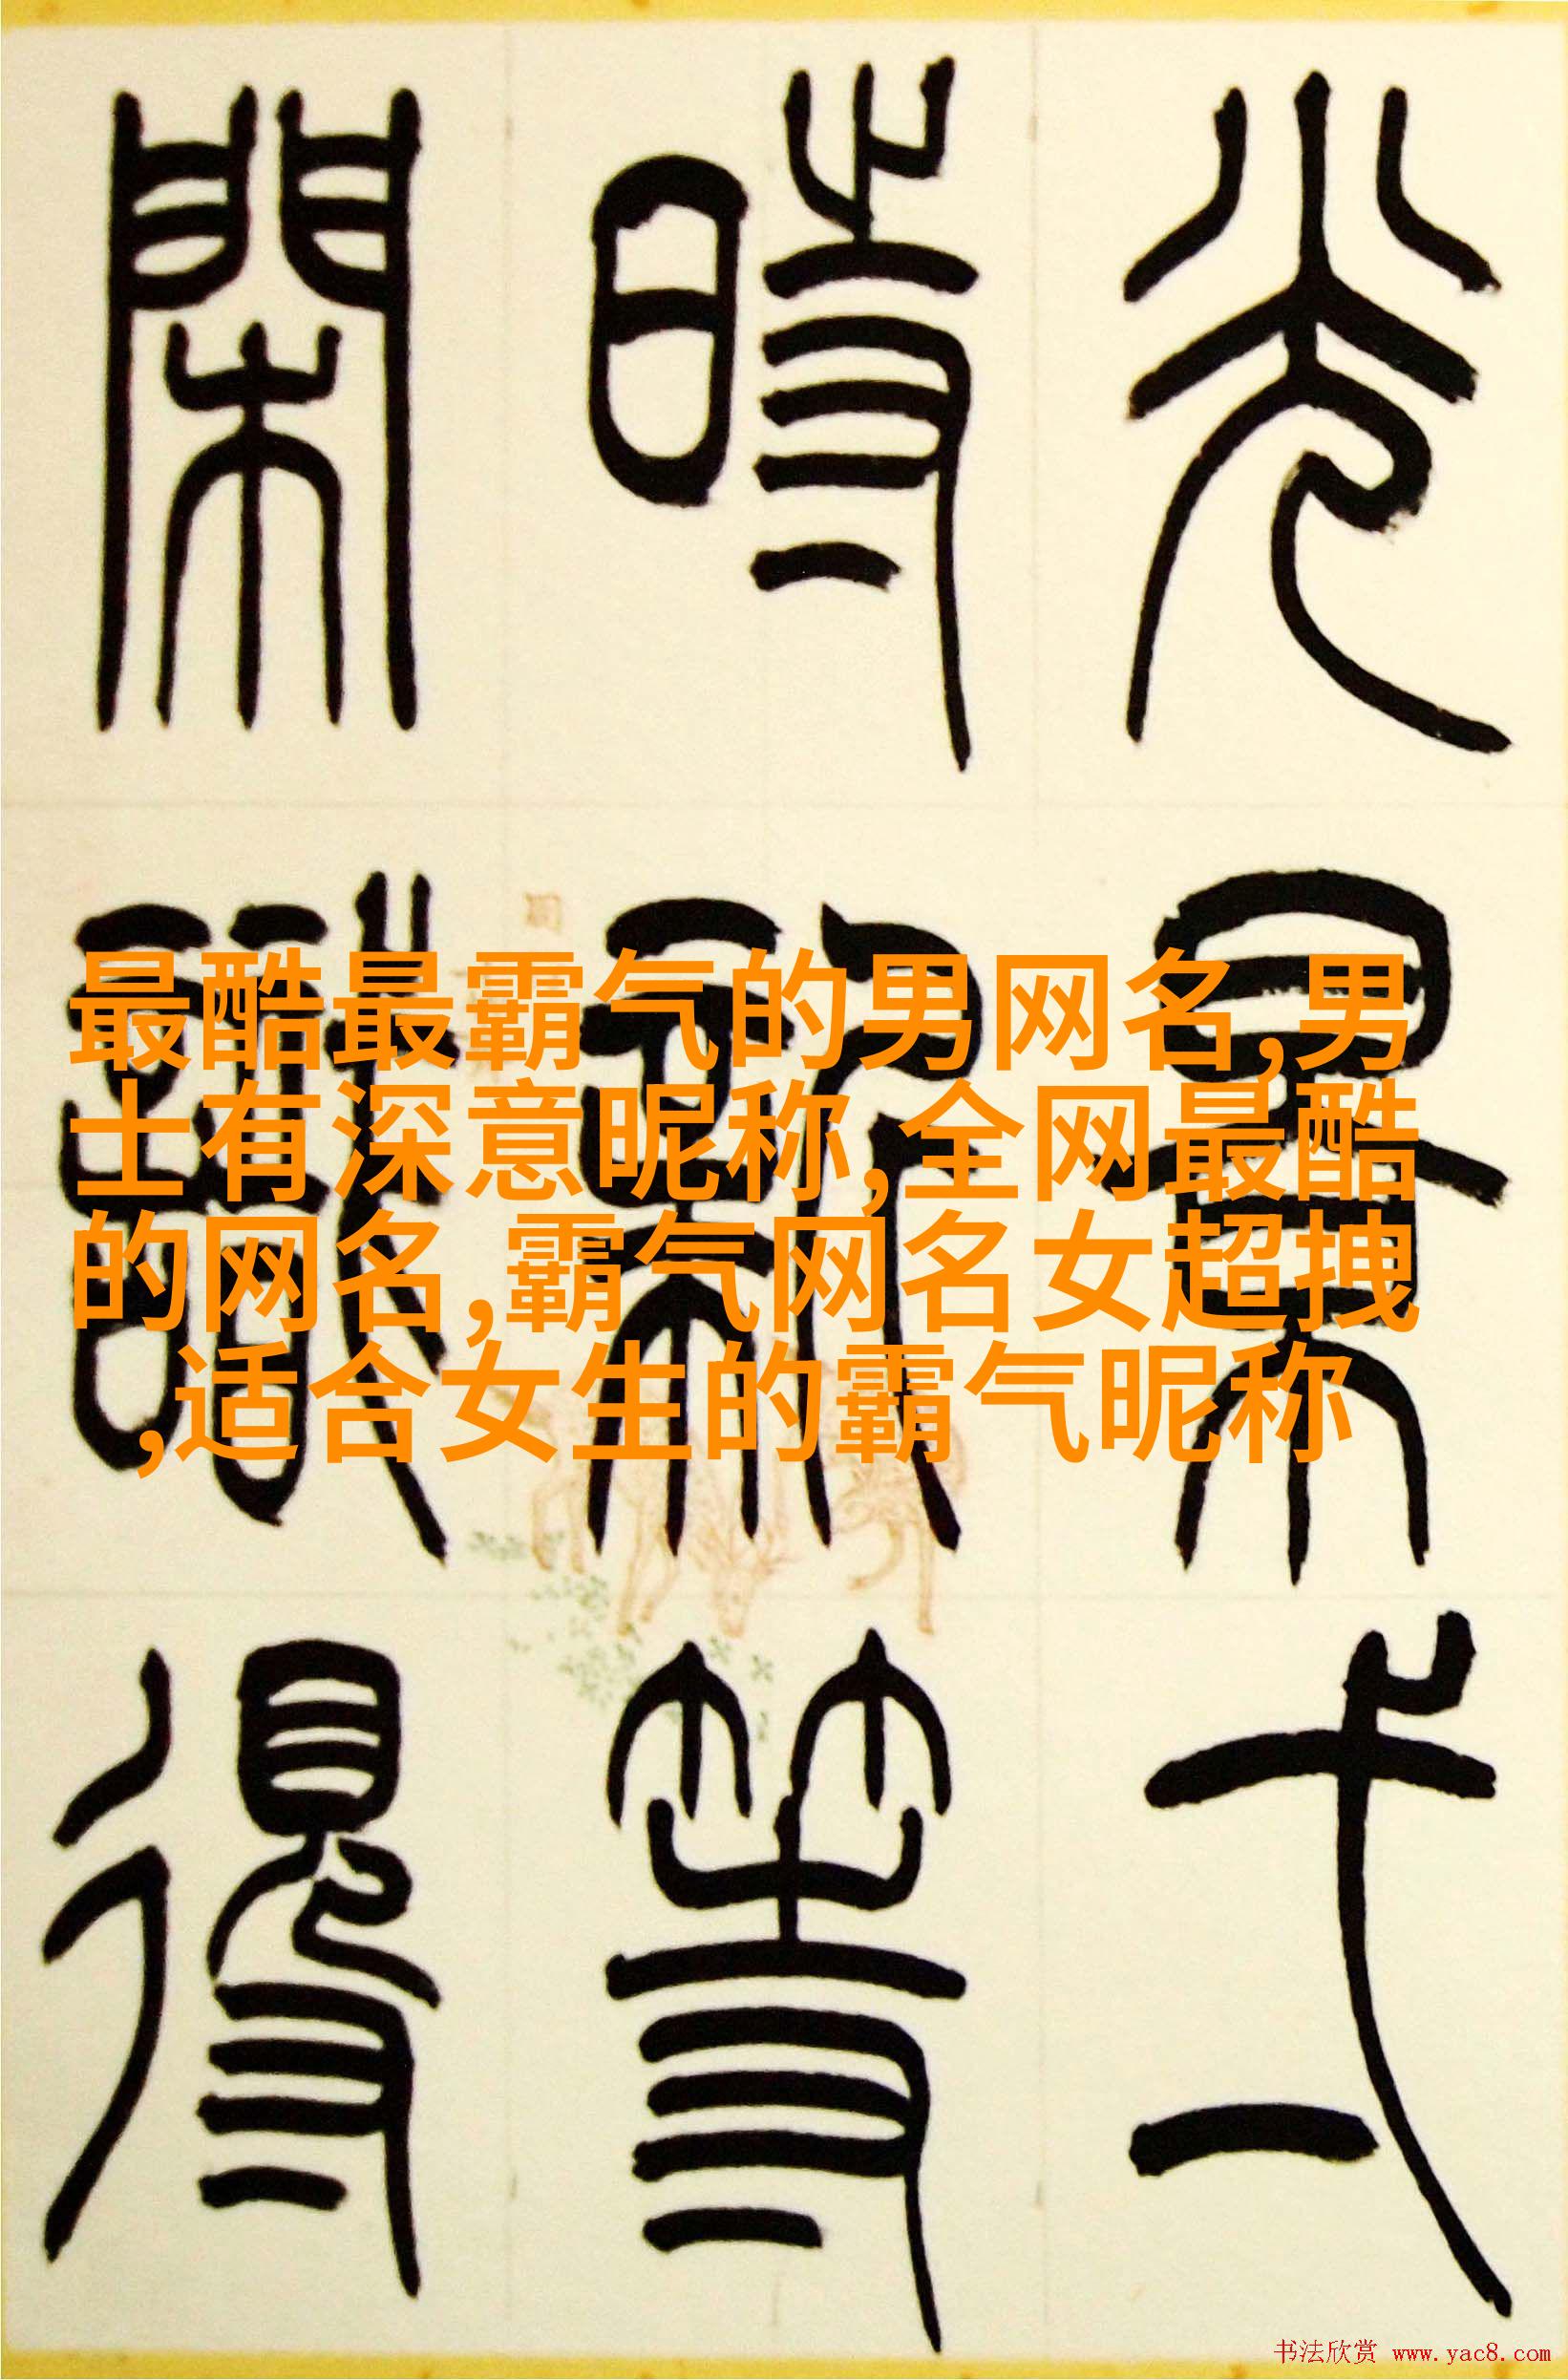 光景弌
時新等
閑識得
最酷最霸气的男网名,男
士有深意昵称,全网最酷
的网名,霸气网名女超拽
,适合女生的霸气昵称
书法欣赏 www.yac8.com